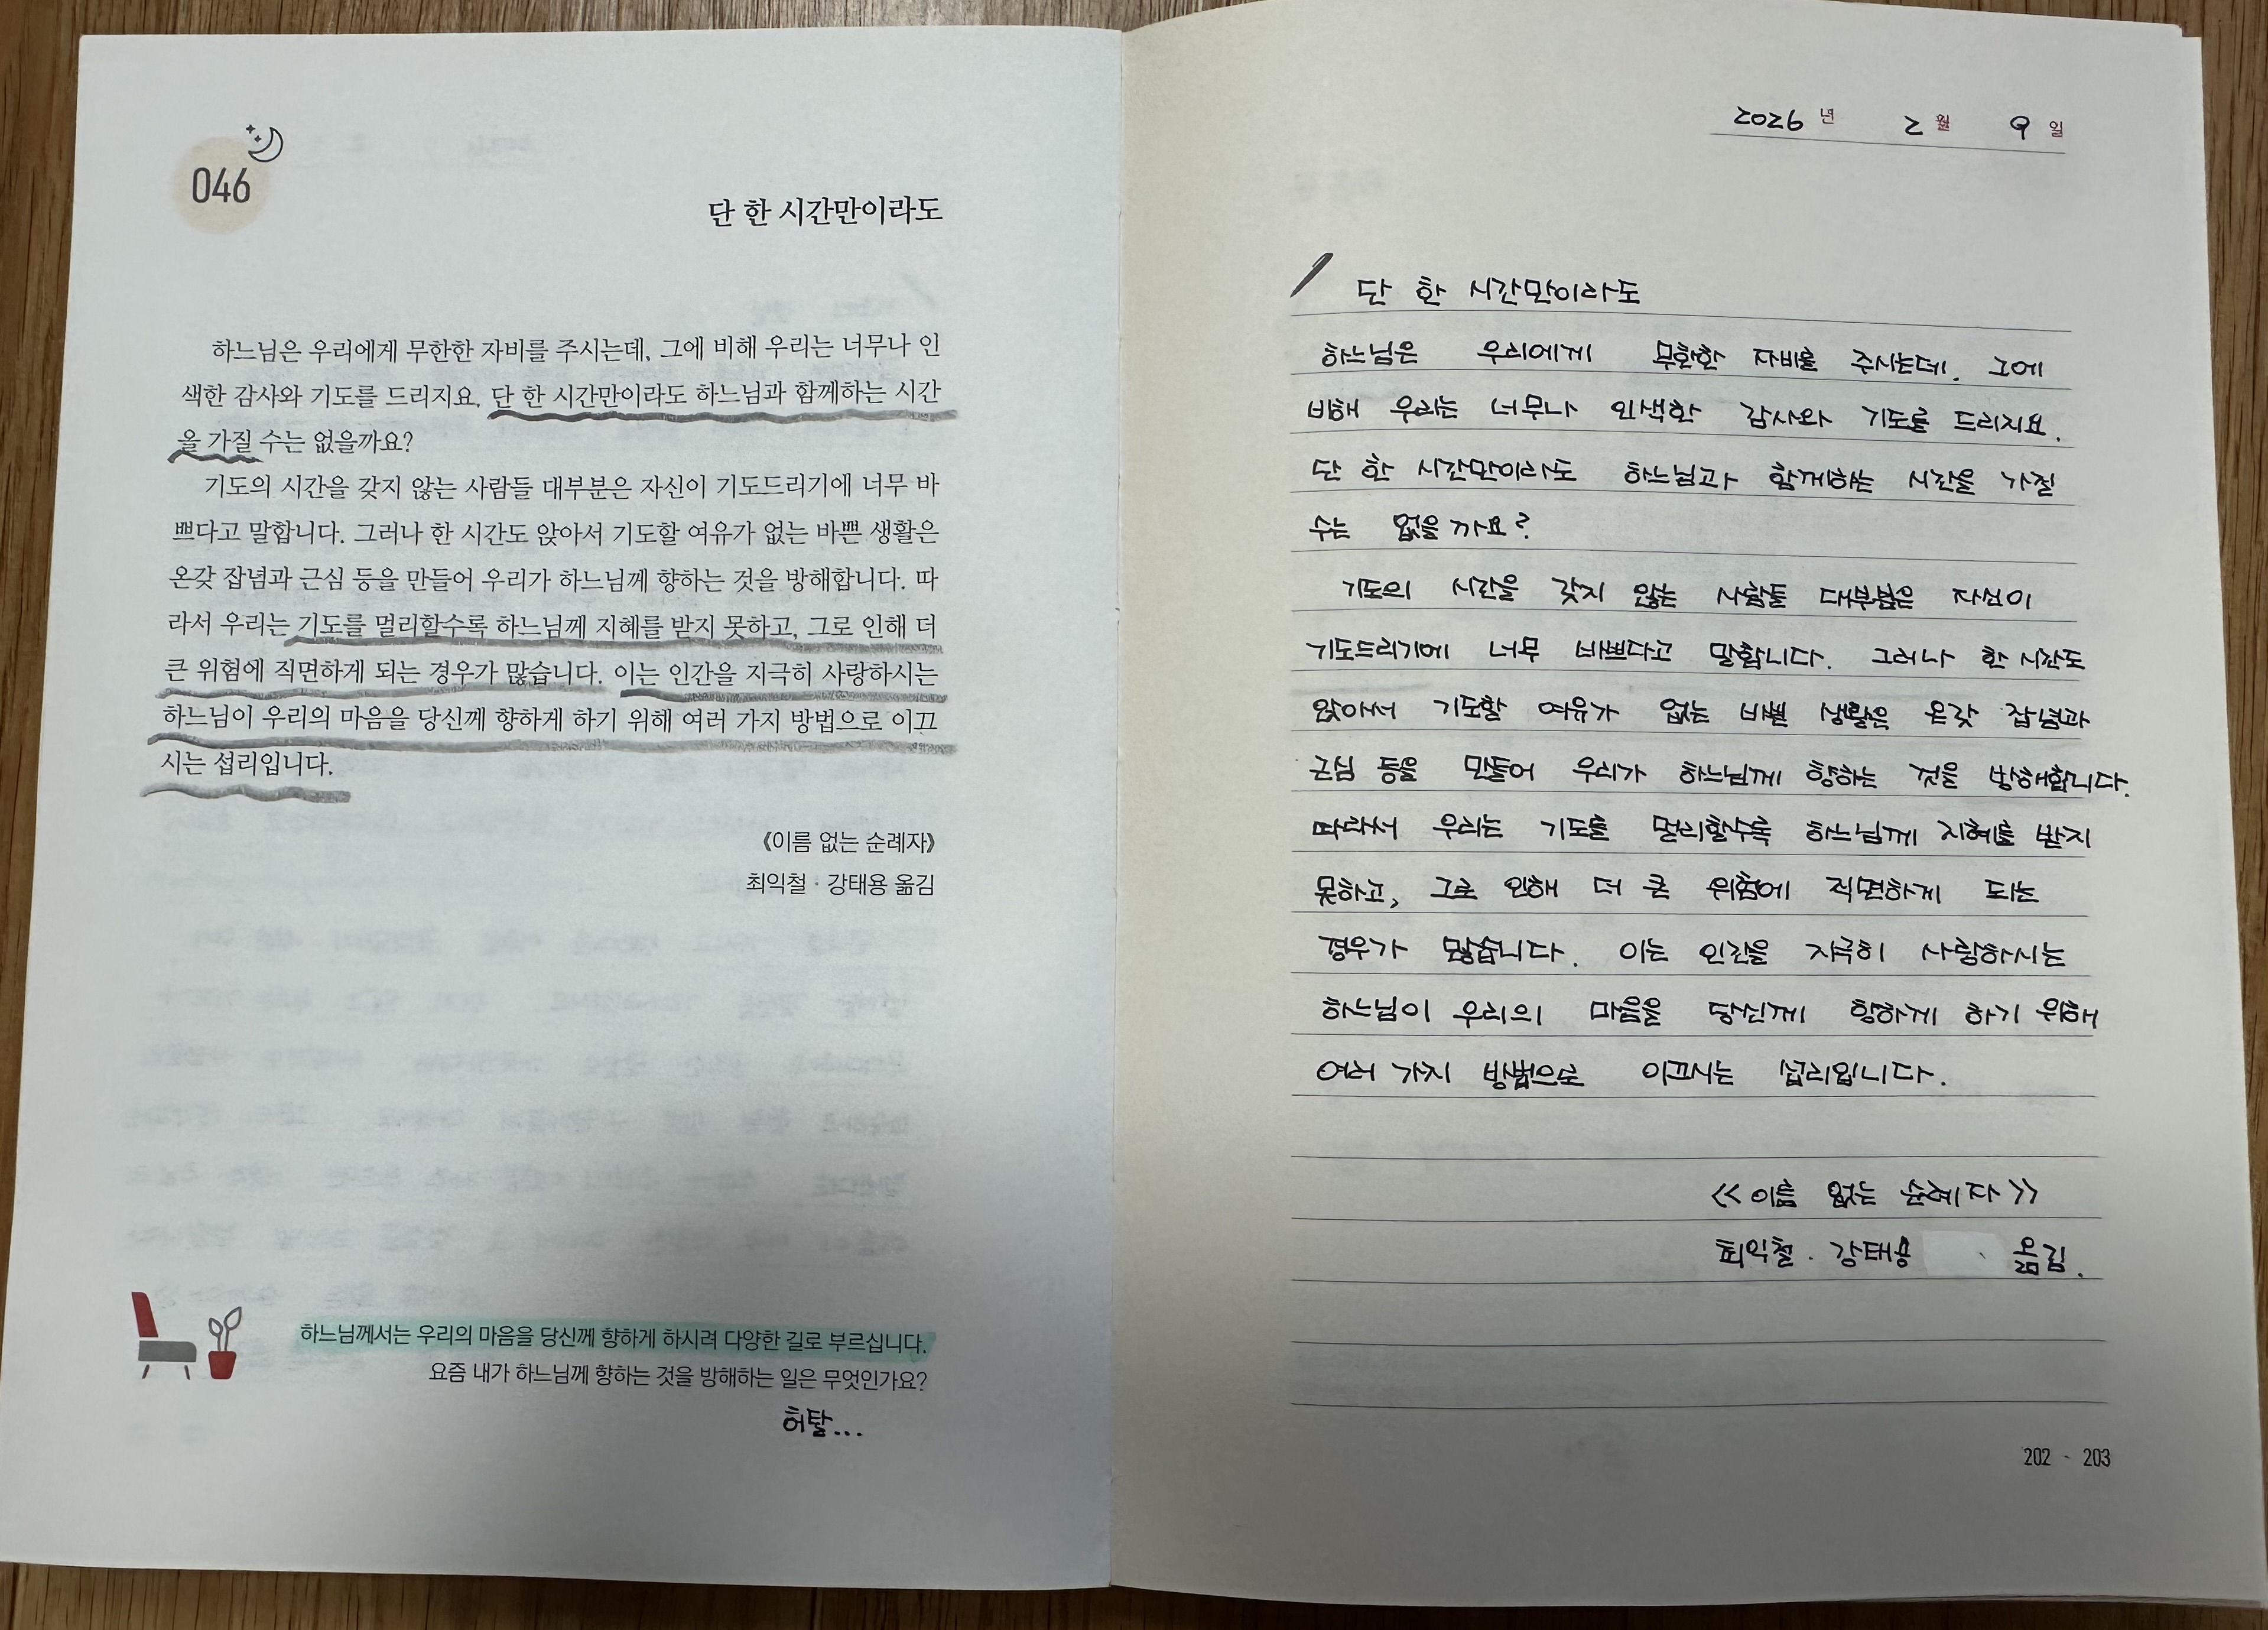 046
단 한 시간만이라도
하느님은 우리에게 무한한 자비를 주시는데, 그에 비해 우리는 너무나 인
색한 감사와 기도를 드리지요. 단 한 시간만이라도 하느님과 함께하는 시간
을 가질 수는 없을까요?
기도의 시간을 갖지 않는 사람들 대부분은 자신이 기도드리기에 너무 바
쁘다고 말합니다. 그러나 한 시간도 앉아서 기도할 여유가 없는 바쁜 생활은
온갖 잡념과 근심 등을 만들어 우리가 하느님께 향하는 것을 방해합니다. 따
라서 우리는 기도를 멀리할수록 하느님께 지혜를 받지 못하고, 그로 인해 더
큰 위험에 직면하게 되는 경우가 많습니다. 이는 인간을 지극히 사랑하시는
하느님이 우리의 마음을 당신께 향하게 하기 위해 여러 가지 방법으로 이끄
시는 섭리입니다.
《이름 없는 순례자》
최익철 · 강태용 옮김
하느님께서는 우리의 마음을 당신께 향하게 하시려 다양한 길로 부르십니다.
요즘 내가 하느님께 향하는 것을 방해하는 일은 무엇인가요?
허탈...
2026 년 2 월 9 일
단 한 시간만이라도
하느님은 우리에게 무한한 자비를 주시는데. 그에
비해 우리는 너무나 인색한 감사와 기도를 드리지요.
단 한 시간만이라도 하느님과 함께하는 시간을 가질
수는 없을까요?
기도의 시간을 갖지 않는 사람들 대부분은 자신이
기도드리기에 너무 바쁘다고 말합니다. 그러나 한 시간도
앉아서 기도할 여유가 없는 바쁜 생활은 온갖 잡념과
근심 등을 만들어 우리가 하느님께 향하는 것을 방해합니다.
따라서 우리는 기도를 멀리할수록 하느님께 지혜를 받지
못하고, 그로 인해 더 큰 위험에 직면하게 되는
경우가 많습니다. 이는 인간을 지극히 사랑하시는
하느님이 우리의 마음을 당신께 향하게 하기 위해
여러 가지 방법으로 이끄시는 섭리입니다.
<<이름 없는 순례자>>
최익철 · 강태용 옮김.
202 - 203